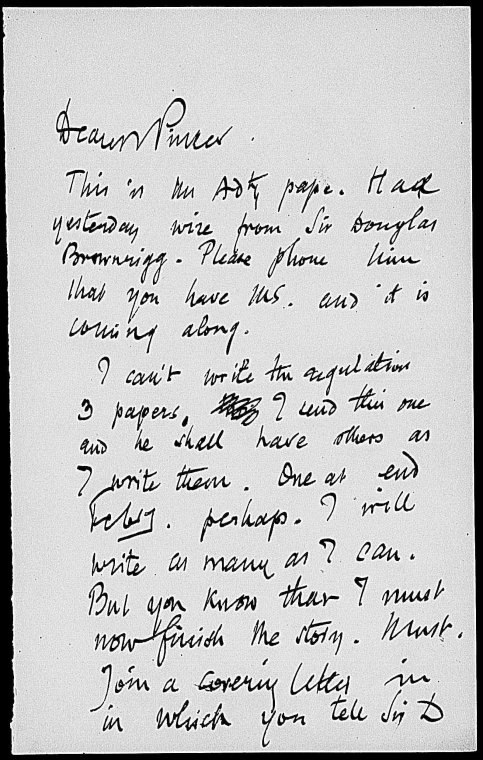 Dearest Pinker.
This is the Adty paper. Had
yesterday wire from Sir Douglas
Brownrigg. Please phone him
that you have MS. and it is
coming along.
I can't write the regulation
3 papers. I send this one
and he shall have others as
I write them. One at end
Febry. perhaps. I will
write as many as I can.
But you know that I must
now finish the story. Must.
Join a covering letter in
in which you tell Sir D